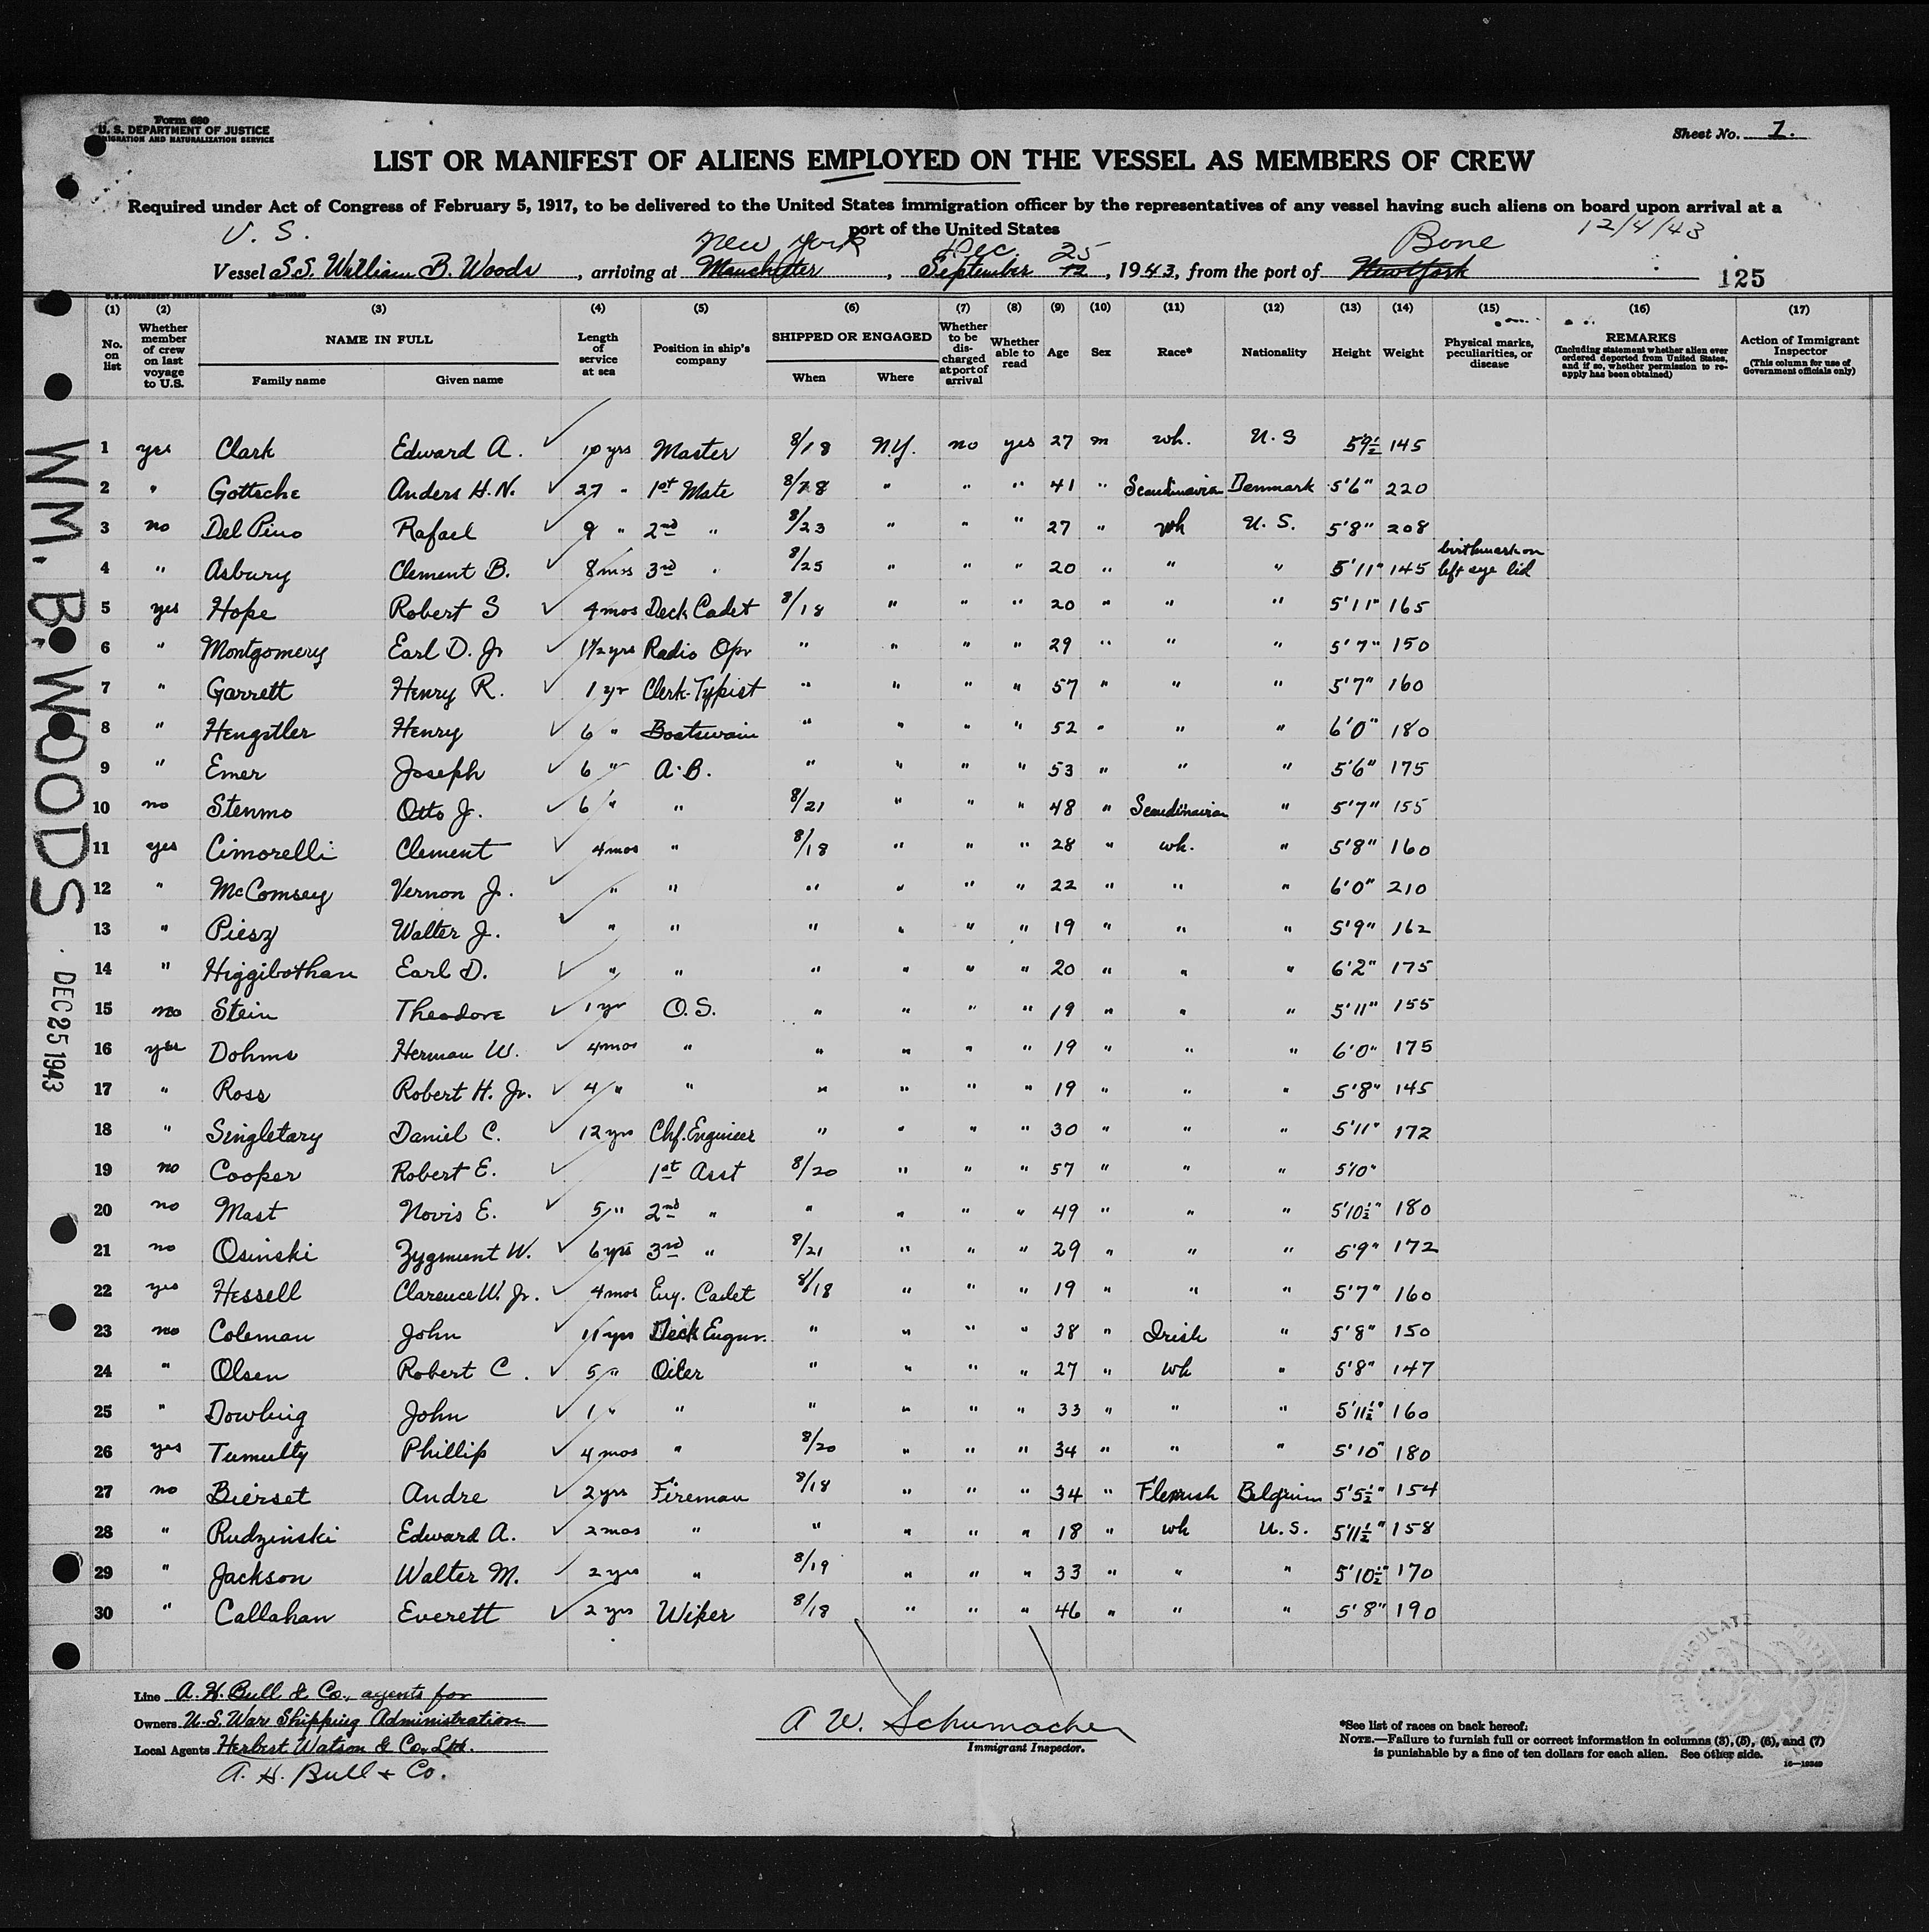 Form 680
U. S. DEPARTMENT OF JUSTICE
IMMIGRATION AND NATURALIZATION SERVICE
Sheet No. 1.
LIST OR MANIFEST OF ALIENS EMPLOYED ON THE VESSEL AS MEMBERS OF CREW
Required under Act of Congress of February 5, 1917, to be delivered to the United States immigration officer by the representatives of any vessel having such aliens on board upon arrival at a
port of the United States
U. S. New York Dec 25 Bone 12/4/43
Vessel S.S. William B. Woods, arriving at Manchester, September 12, 1943, from the port of New York
125
(1) (2) (3) (4) (5) (6) (7) (8) (9) (10) (11) (12) (13) (14) (15) (16) (17)
No. on list Whether member of crew on last voyage to U.S. NAME IN FULL Family name Given name Length of service at sea Position in ship's company SHIPPED OR ENGAGED When Where Whether to be discharged at port of arrival Whether able to read Age Sex Race* Nationality Height Weight Physical marks, peculiarities, or disease REMARKS (Including statement whether alien ever ordered deported from United States, and if so, whether permission to reapply has been obtained) Action of Immigrant Inspector (This column for use of Government officials only)
1 yes Clark Edward A. 10 yrs Master 8/18 N.Y. no yes 27 m wh. U.S 5 9½ 145
2 " Gottsche Anders H.N. 27 " 1st Mate 8/18 " " " 41 " Scandinavian Denmark 5'6" 220
3 no Del Pino Rafael 9 " 2nd " 8/23 " " " 27 " wh U.S. 5'8" 208
4 " Asbury Clement B. 8 mos 3rd " 8/25 " " " 20 " " " 5'11" 145 birthmark on left eye lid
5 yes Hope Robert S 4 mos Deck Cadet 8/18 " " " 20 " " " 5'11" 165
6 " Montgomery Earl D. Jr 1½ yrs Radio Opr " " " " 29 " " " 5'7" 150
7 " Garrett Henry R. 1 yr Clerk-Typist " " " " 57 " " " 5'7" 160
8 " Hengstler Henry 6 " Boatswain " " " " 52 " " " 6'0" 180
9 " Emer Joseph 6 " A.B. " " " " 53 " " " 5'6" 175
10 no Stenmo Otto J. 6 " " 8/21 " " " 48 " Scandinavian " 5'7" 155
11 yes Cimorelli Clement 4 mos " 8/18 " " " 28 " wh. " 5'8" 160
12 " McComsey Vernon J. " " " " " " 22 " " " 6'0" 210
13 " Piesz Walter J. " " " " " " 19 " " " 5'9" 162
14 " Higgibothan Earl D. " " " " " " 20 " " " 6'2" 175
15 no Stein Theodore 1 yr O.S. " " " " 19 " " " 5'11" 155
16 yes Dohms Herman W. 4 mos " " " " " 19 " " " 6'0" 175
17 " Ross Robert H. Jr. 4 " " " " " " 19 " " " 5'8" 145
18 " Singletary Daniel C. 12 yrs Chf. Engineer " " " " 30 " " " 5'11" 172
19 no Cooper Robert E. 1st Asst 8/20 " " " 57 " " " 5'10"
20 no Mast Novis E. 5 " 2nd " " " " " 49 " " " 5'10½" 180
21 no Osinski Zygmunt W. 6 yrs 3rd " 8/21 " " " 29 " " " 5'9" 172
22 yes Hessell Clarence W. Jr. 4 mos Eng. Cadet 8/18 " " " 19 " " " 5'7" 160
23 no Coleman John 11 yrs Deck Engnr. " " " " 38 " Irish " 5'8" 150
24 " Olsen Robert C. 5 " Oiler " " " " 27 " wh " 5'8" 147
25 " Dowling John 1 " " " " " " 33 " " " 5'11½" 160
26 yes Tumulty Phillip 4 mos " 8/20 " " " 34 " " " 5'10" 180
27 no Bierset Andre 2 yrs Fireman 8/18 " " " 34 " Flemish Belgium 5'5½" 154
28 " Rudzinski Edward A. 2 mos " " " " " 18 " wh U.S. 5'11½" 158
29 " Jackson Walter M. 2 yrs " 8/19 " " " 33 " " " 5'10½" 170
30 " Callahan Everett 2 yrs Wiper 8/18 " " " 46 " " " 5'8" 190
WM. B. WOODS
DEC 25 1943
Line A. H. Bull & Co., agents for
Owners U.S. War Shipping Administration
Local Agents Herbert Watson & Co., Ltd.
A. H. Bull & Co.
A W. Schumacher
Immigrant Inspector.
*See list of races on back hereof.
NOTE.—Failure to furnish full or correct information in columns (3), (5), (6), and (7)
is punishable by a fine of ten dollars for each alien. See other side.
16—10349